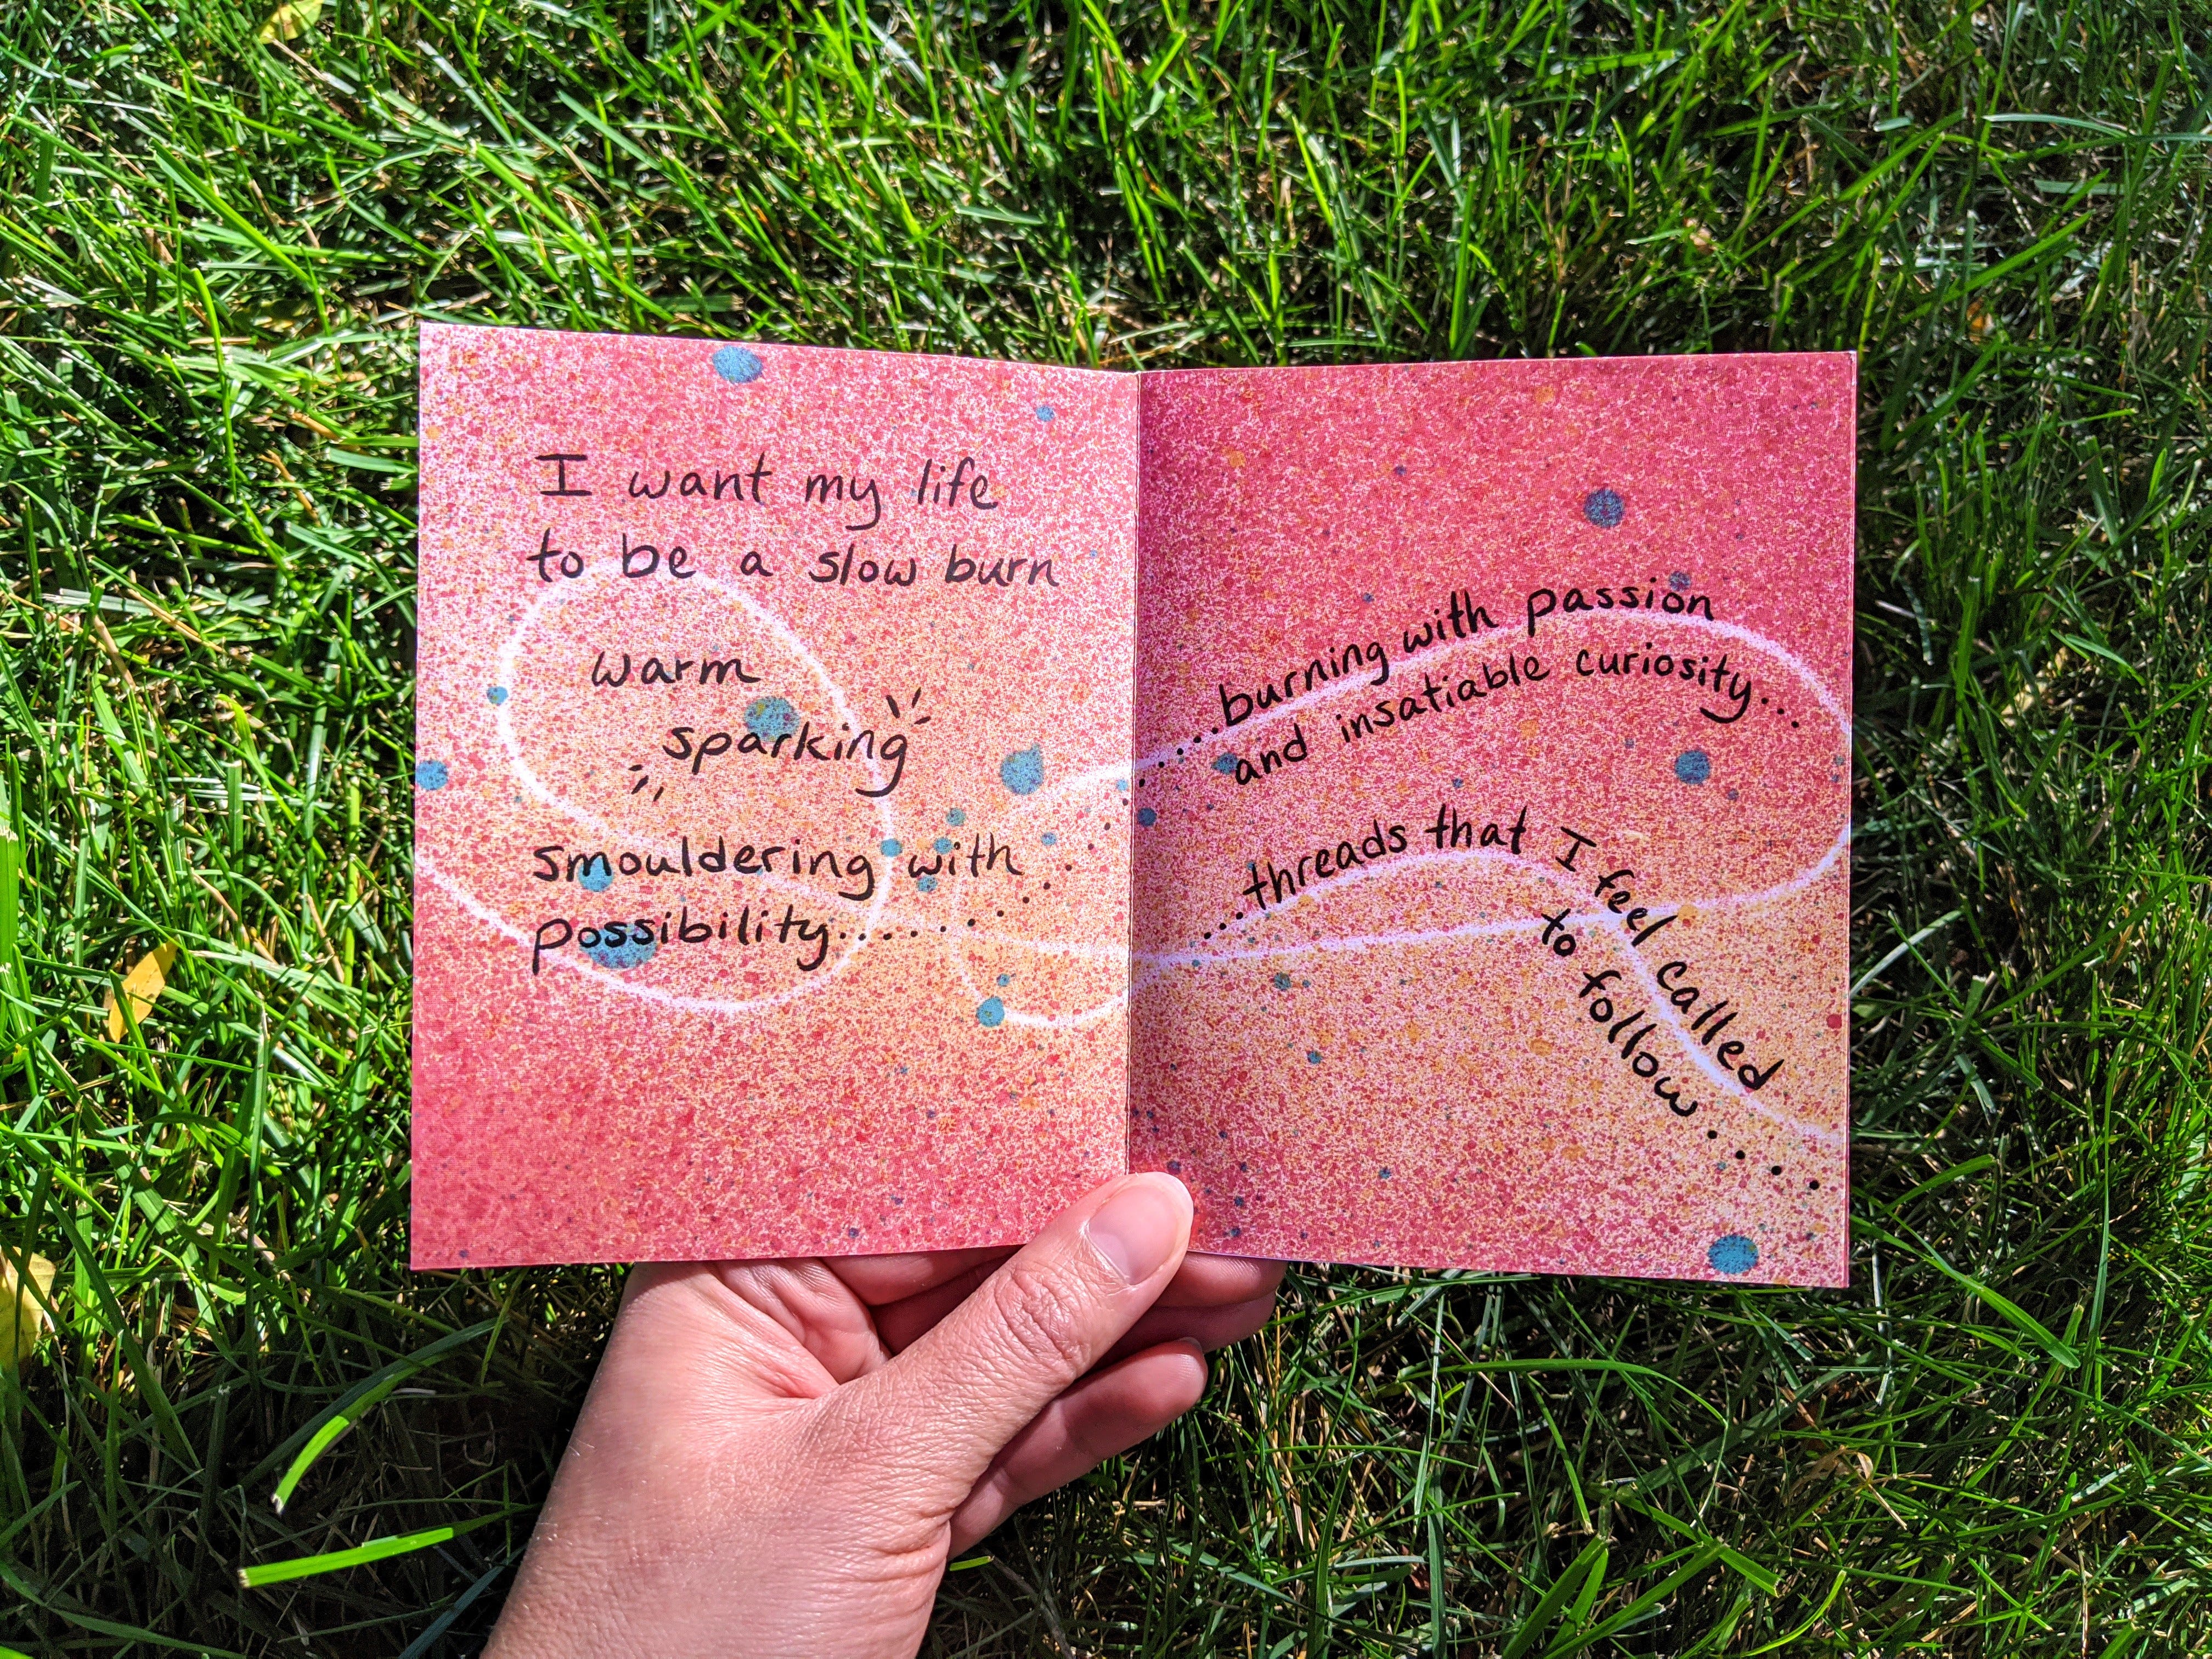 I want my life
to be a slow burn
warm
sparking
smouldering with
possibility.......
...burning with passion
and insatiable curiosity...
...threads that I feel called
to follow....